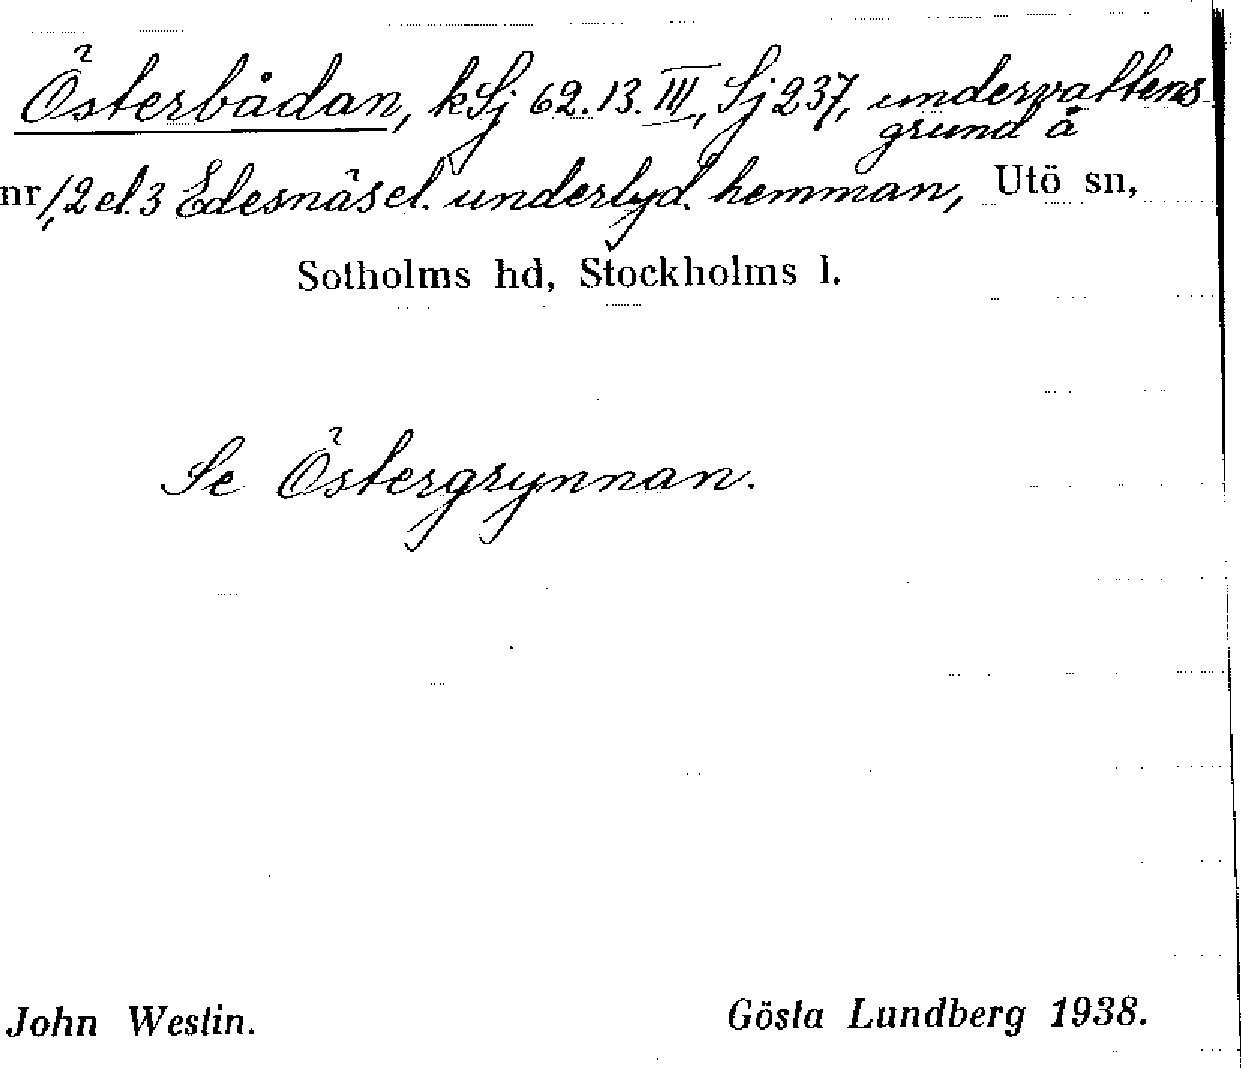 Österbådan, kSj 62.13.III, Sj 237, undervattens
grund å
nr 1, 2 el. 3 Edesnäs el. underlyd. hemman, Utö sn,
Sotholms hd, Stockholms l.
Se Östergrynnan.
John Westin. Gösta Lundberg 1938.